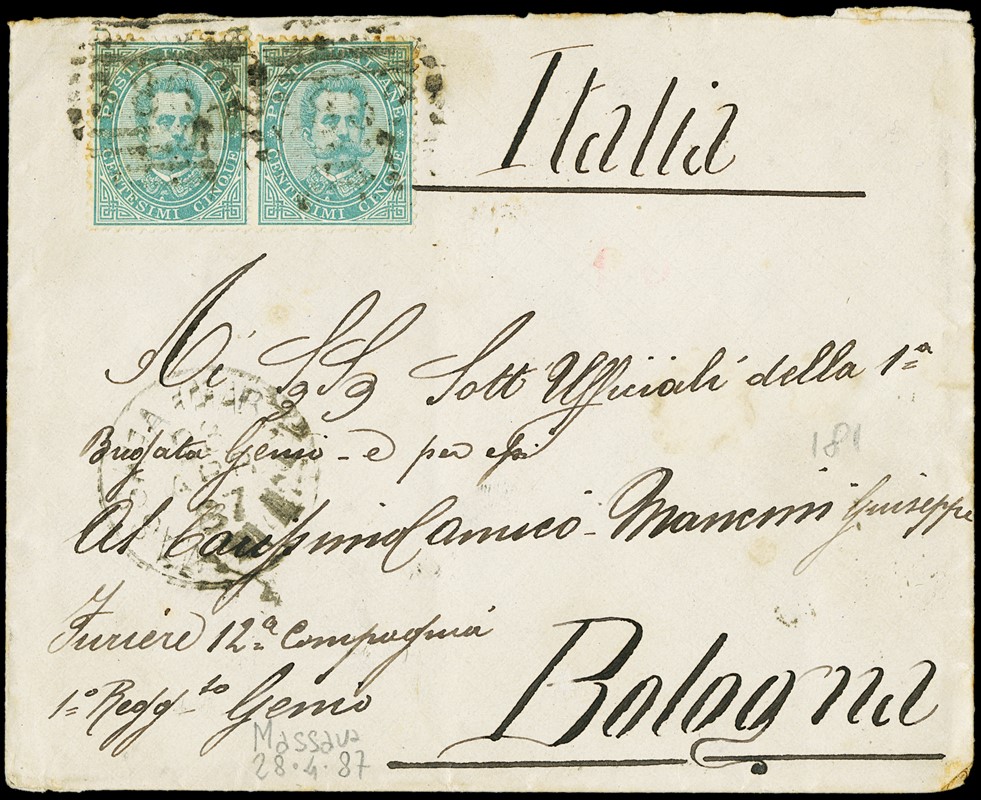 POSTE ITALIANE POSTE ITALIANE
CENTESIMI CINQUE CENTESIMI CINQUE
Italia
Ai SS Sott Ufficiali della 1ª
Brigata Genio - e per essi
181
Al Carissimo amico Mancini Guiseppe
Furiere 12ª Compagnia
1º Reggto Genio
Bologna
Massaua
28.4.87